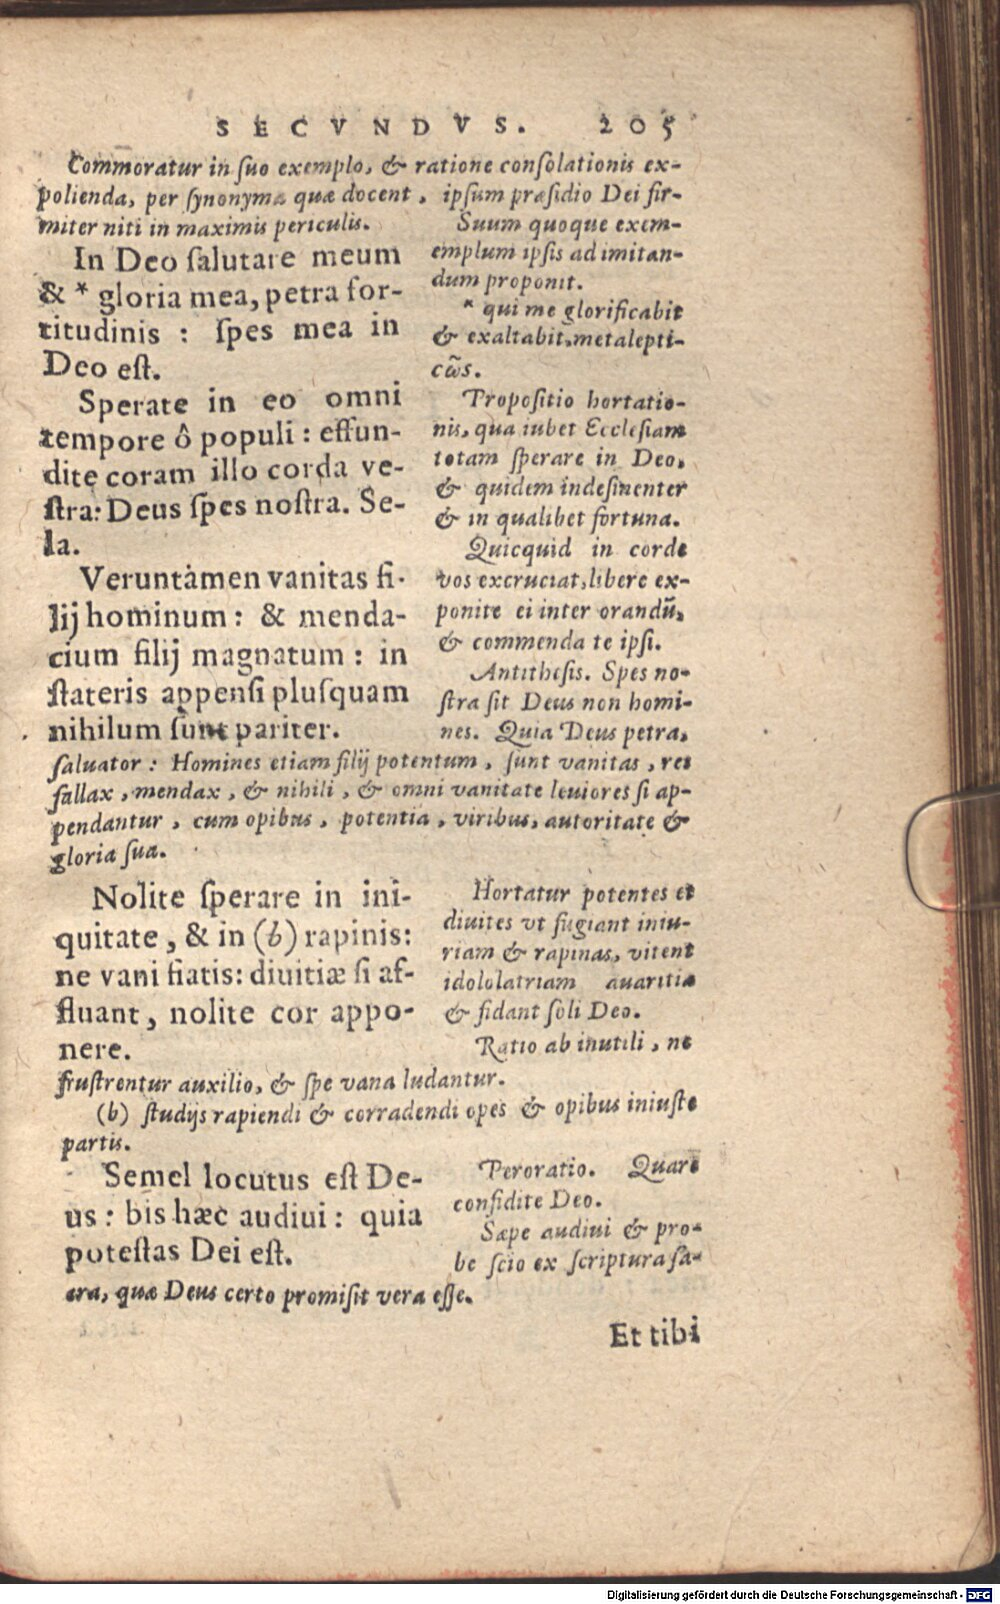 SECVNDVS. 205
Commoratur in suo exemplo, & ratione consolationis ex-
polienda, per synonyma quæ docent, ipsum præsidio Dei fir-
miter niti in maximis periculis.
In Deo salutare meum
& * gloria mea, petra for-
titudinis : spes mea in
Deo est.
Suum quoque exem-
emplum ipsis ad imitan-
dum proponit.
* qui me glorificabit
& exaltabit, metalepti-
cω̃s.
Sperate in eo omni
tempore ô populi : effun-
dite coram illo corda ve-
stra: Deus spes nostra. Se-
la.
Propositio hortatio-
nis, qua iubet Ecclesiam
totam sperare in Deo,
& quidem indesinenter
& in qualibet fortuna.
Quicquid in corde
vos excruciat, libere ex-
ponite ei inter orandũ,
& commenda te ipsi.
Veruntàmen vanitas fi-
lij hominum : & menda-
cium filij magnatum : in
stateris appensi plusquam
nihilum sunt pariter.
Antithesis. Spes no-
stra sit Deus non homi-
nes. Quia Deus petra,
saluator : Homines etiam filij potentum, sunt vanitas, res
fallax, mendax, & nihili, & omni vanitate leuiores si ap-
pendantur, cum opibus, potentia, viribus, autoritate &
gloria sua.
Nolite sperare in ini-
quitate, & in (b) rapinis:
ne vani fiatis: diuitiæ si af-
fluant, nolite cor appo-
nere.
Hortatur potentes et
diuites vt fugiant iniu-
riam & rapinas, vitent
idololatriam auaritiæ
& fidant soli Deo.
Ratio ab inutili, ne
frustrentur auxilio, & spe vana ludantur.
(b) studijs rapiendi & corradendi opes & opibus iniuste
partis.
Semel locutus est De-
us : bis hæc audiui : quia
potestas Dei est.
Peroratio. Quare
confidite Deo.
Sæpe audiui & pro-
be scio ex scriptura sa-
cra, quæ Deus certo promisit vera esse.
Et tibi
Digitalisierung gefördert durch die Deutsche Forschungsgemeinschaft - DFG